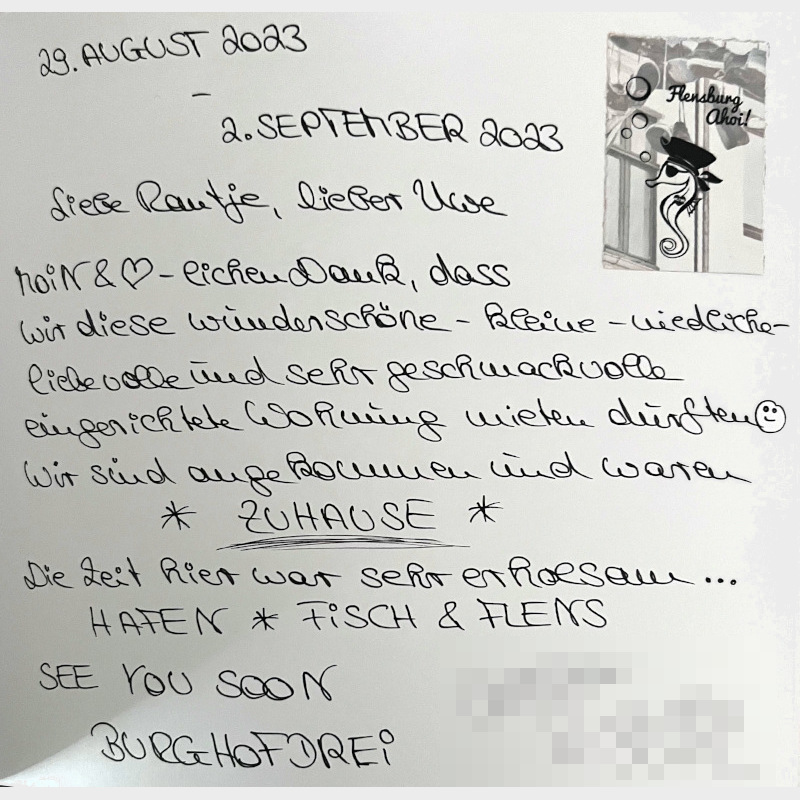 29. AUGUST 2023
–
2. SEPTEMBER 2023
Flensburg
Ahoi!
Liebe Rautje, lieber Uwe
MOIN & ♡-lichen Dank, dass
wir diese wunderschöne - kleine - niedliche-
liebevolle und sehr geschmackvolle
eingerichtete Wohnung mieten durften ☺
Wir sind angekommen und waren
* ZUHAUSE *
Die Zeit hier war sehr erholsam...
HAFEN * FISCH & FLENS
SEE YOU SOON
BURGHOFDREI